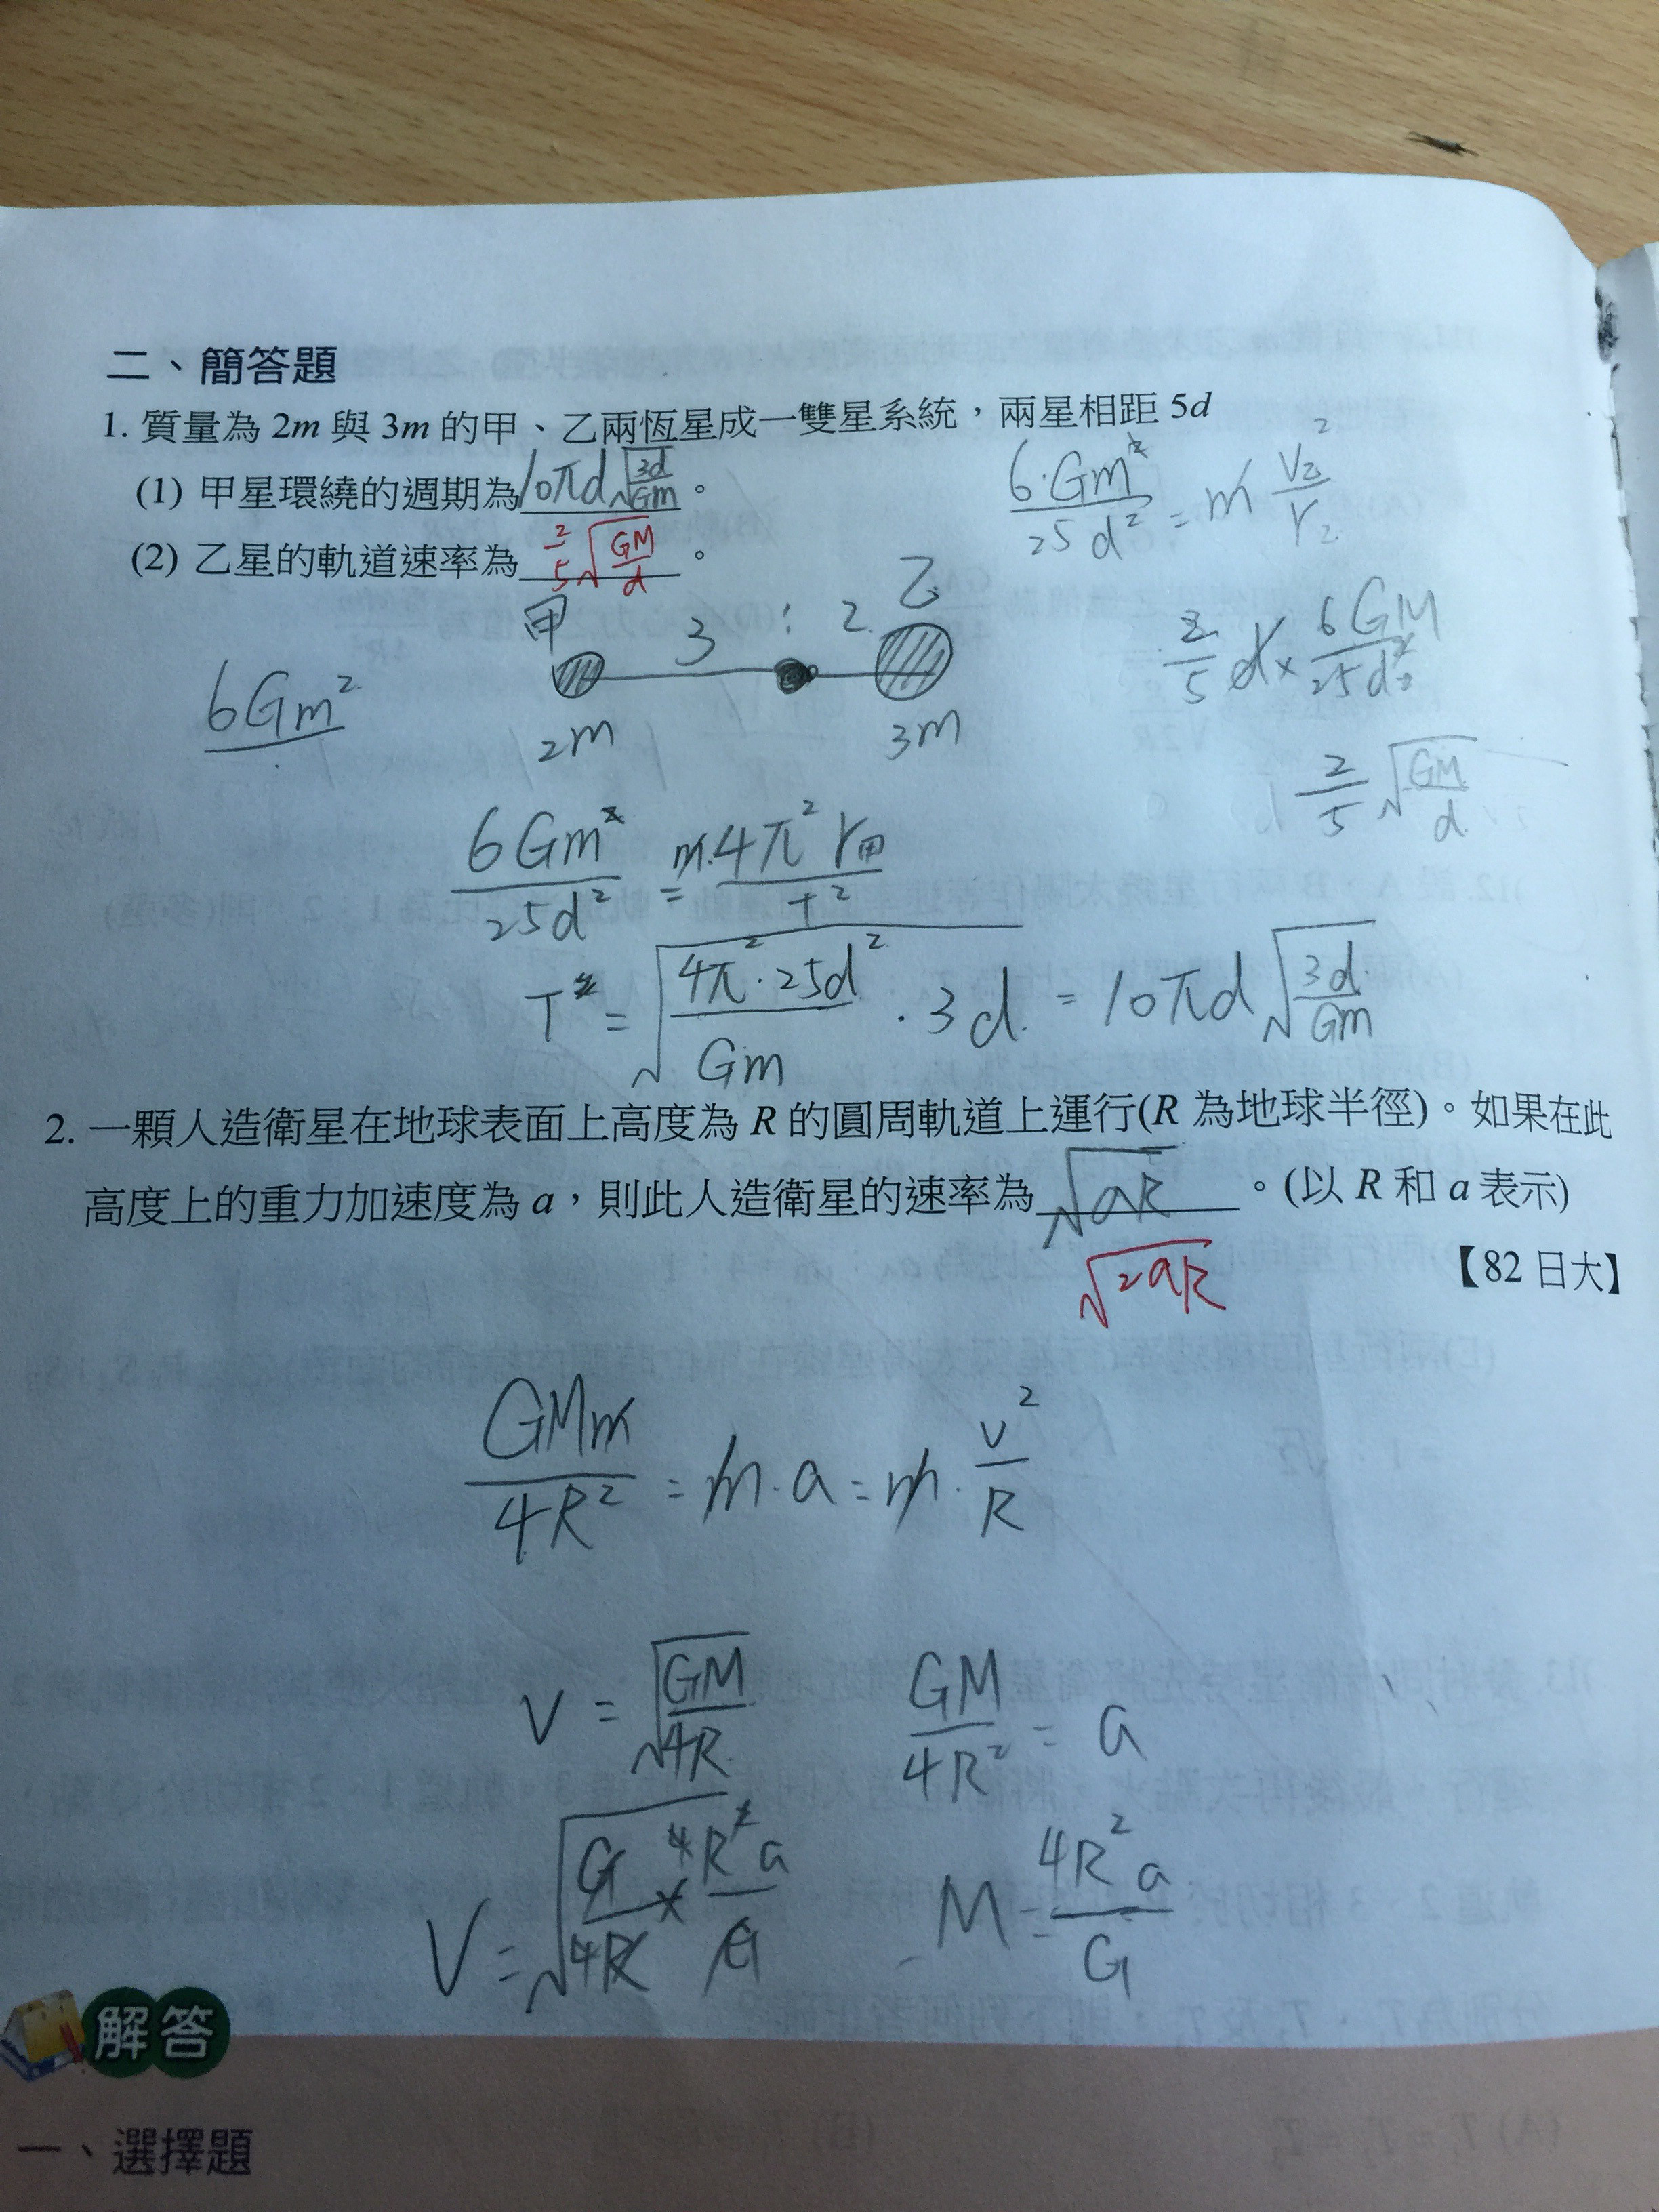 二、簡答題
1. 質量為 2m 與 3m 的甲、乙兩恆星成一雙星系統，兩星相距 5d
(1) 甲星環繞的週期為10πd√(3d/Gm)。
(2) 乙星的軌道速率為2/5√(GM/d)。
6·Gm²/25d² = m v₂²/r₂
甲 3 : 2 乙
2m 3m
6Gm²
2/5 d × 6GM/25d²
2/5 √(GM/d)
6Gm²/25d² = m·4π²r甲/T²
T² = √(4π²·25d²/Gm · 3d) = 10πd√(3d/Gm)
2. 一顆人造衛星在地球表面上高度為 R 的圓周軌道上運行(R 為地球半徑)。如果在此
高度上的重力加速度為 a，則此人造衛星的速率為√aR。(以 R 和 a 表示)
√2aR
【82 日大】
GMm/4R² = m·a = m·v²/R
V = √(GM/4R) GM/4R² = a
V = √(G/4R × 4R²a/G) M = 4R²a/G
解答
一、選擇題